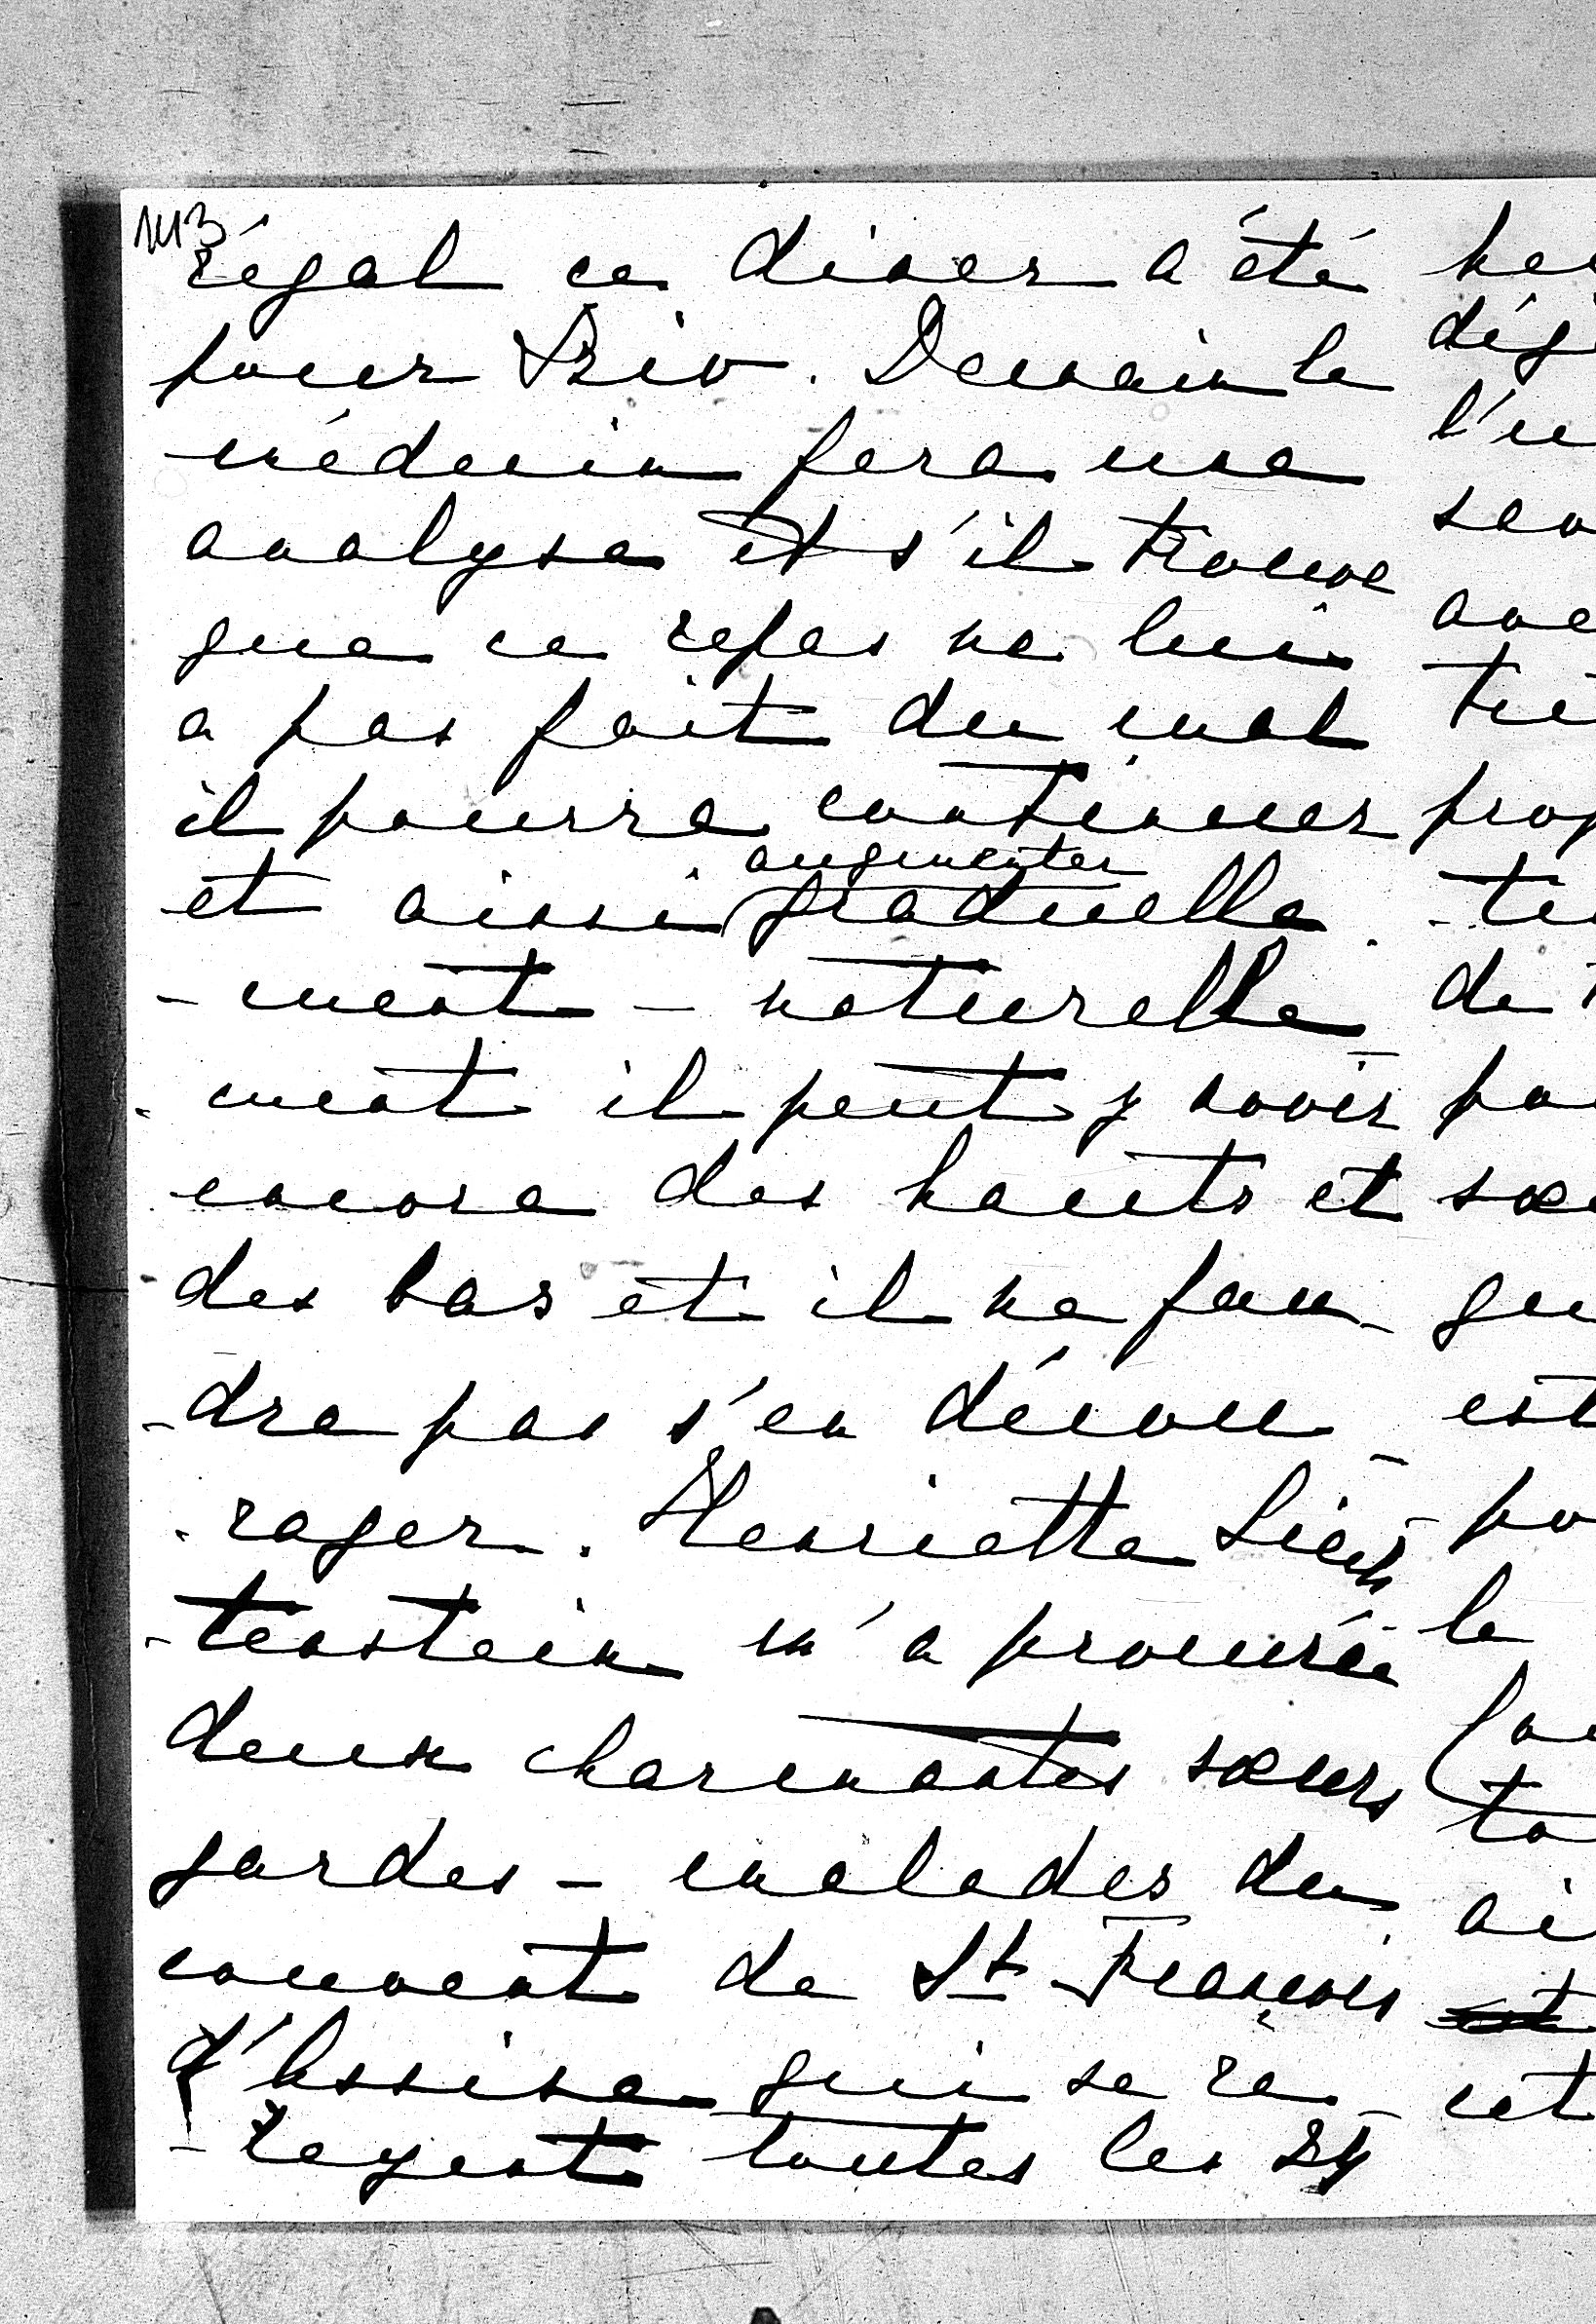 143
régal ce diner a été
pour Bziv. Demain le
médecin fera une
analyse et s'il trouve
que ce repas ne lui
a pas fait du mal
il pourra continuer
et ainsi augmenter graduelle-
-ment - naturelle-
-ment il peut y avoir
encore des hauts et
des bas et il ne fau-
-dra pas s'en décou-
-rager. Henriette Liech-
-tenstein m'a procuré
deux charmantes sœurs
gardes-malades du
couvent de St François
d'Assise qui se re-
-layent toutes les 24